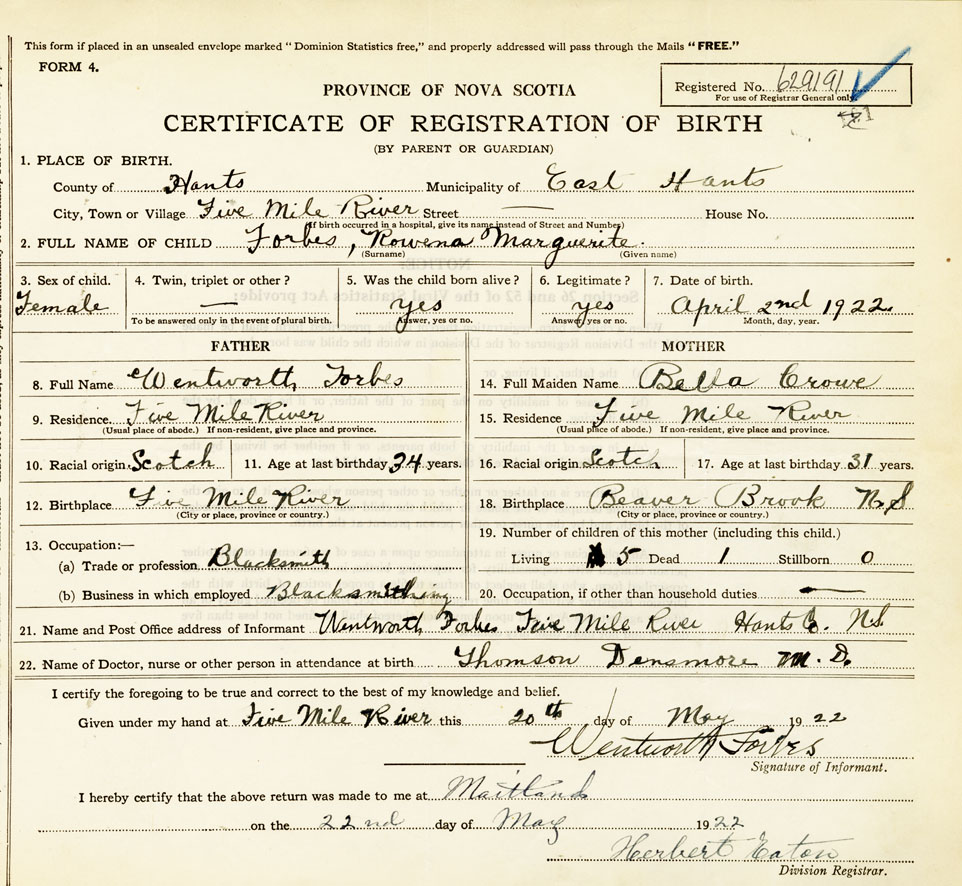 This form if placed in an unsealed envelope marked "Dominion Statistics free," and properly addressed will pass through the Mails "FREE."
FORM 4.
Registered No. 629191
For use of Registrar General only
PROVINCE OF NOVA SCOTIA
CERTIFICATE OF REGISTRATION OF BIRTH
(BY PARENT OR GUARDIAN)
1. PLACE OF BIRTH.
County of Hants Municipality of East Hants
City, Town or Village Five Mile River Street — House No.
(If birth occurred in a hospital, give its name instead of Street and Number)
2. FULL NAME OF CHILD Forbes, Rowena Marguerite.
(Surname) (Given name)
3. Sex of child. 4. Twin, triplet or other? 5. Was the child born alive? 6. Legitimate? 7. Date of birth.
Female — yes yes April 2nd 1922
To be answered only in the event of plural birth. Answer, yes or no. Answer yes or no. Month, day, year.
FATHER MOTHER
8. Full Name Wentworth Forbes 14. Full Maiden Name Bella Crowe
9. Residence Five Mile River 15. Residence Five Mile River
(Usual place of abode.) If non-resident, give place and province. (Usual place of abode.) If non-resident, give place and province.
10. Racial origin Scotch 11. Age at last birthday 34 years. 16. Racial origin Scotch 17. Age at last birthday 31 years.
12. Birthplace Five Mile River 18. Birthplace Beaver Brook N S
(City or place, province or country.) (City or place, province or country.)
13. Occupation:— 19. Number of children of this mother (including this child.)
(a) Trade or profession Blacksmith Living 5 Dead 1 Stillborn 0
(b) Business in which employed Blacksmithing 20. Occupation, if other than household duties —
21. Name and Post Office address of Informant Wentworth Forbes Five Mile River Hants Co. N.S
22. Name of Doctor, nurse or other person in attendance at birth Thomson Densmore M.D.
I certify the foregoing to be true and correct to the best of my knowledge and belief.
Given under my hand at Five Mile River this 20th day of May 1922
Wentworth Forbes
Signature of Informant.
I hereby certify that the above return was made to me at Maitland
on the 22nd day of May 1922
Herbert Eaton
Division Registrar.